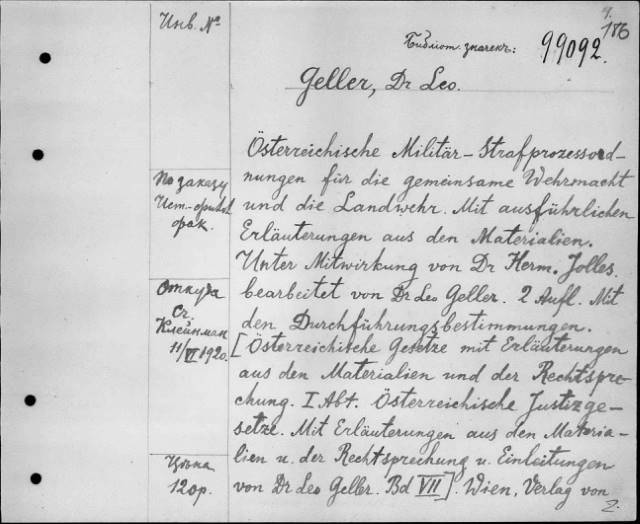 Инв. №
9.
186
Библиот. значек:
99092.
Geller, Dr Leo.
Österreichische Militär-Strafprozessord-
nungen für die gemeinsame Wehrmacht
und die Landwehr. Mit ausführlichen
Erläuterungen aus den Materialien.
Unter Mitwirkung von Dr Herm. Jolles.
bearbeitet von Dr Leo Geller. 2 Aufl. Mit
den Durchführungsbestimmungen.
[Österreichische Gesetze mit Erläuterungen
aus den Materialien und der Rechtspre-
chung. I Abt. Österreichische Justizge-
setze. Mit Erläuterungen aus den Materia-
lien u. der Rechtsprechung u. Einleitungen
von Dr Leo Geller. Bd VII]. Wien, Verlag von
2.
По заказу
фак.
Откуда
Ст.
Клейнман
11/VI 1920.
Цена
120р.